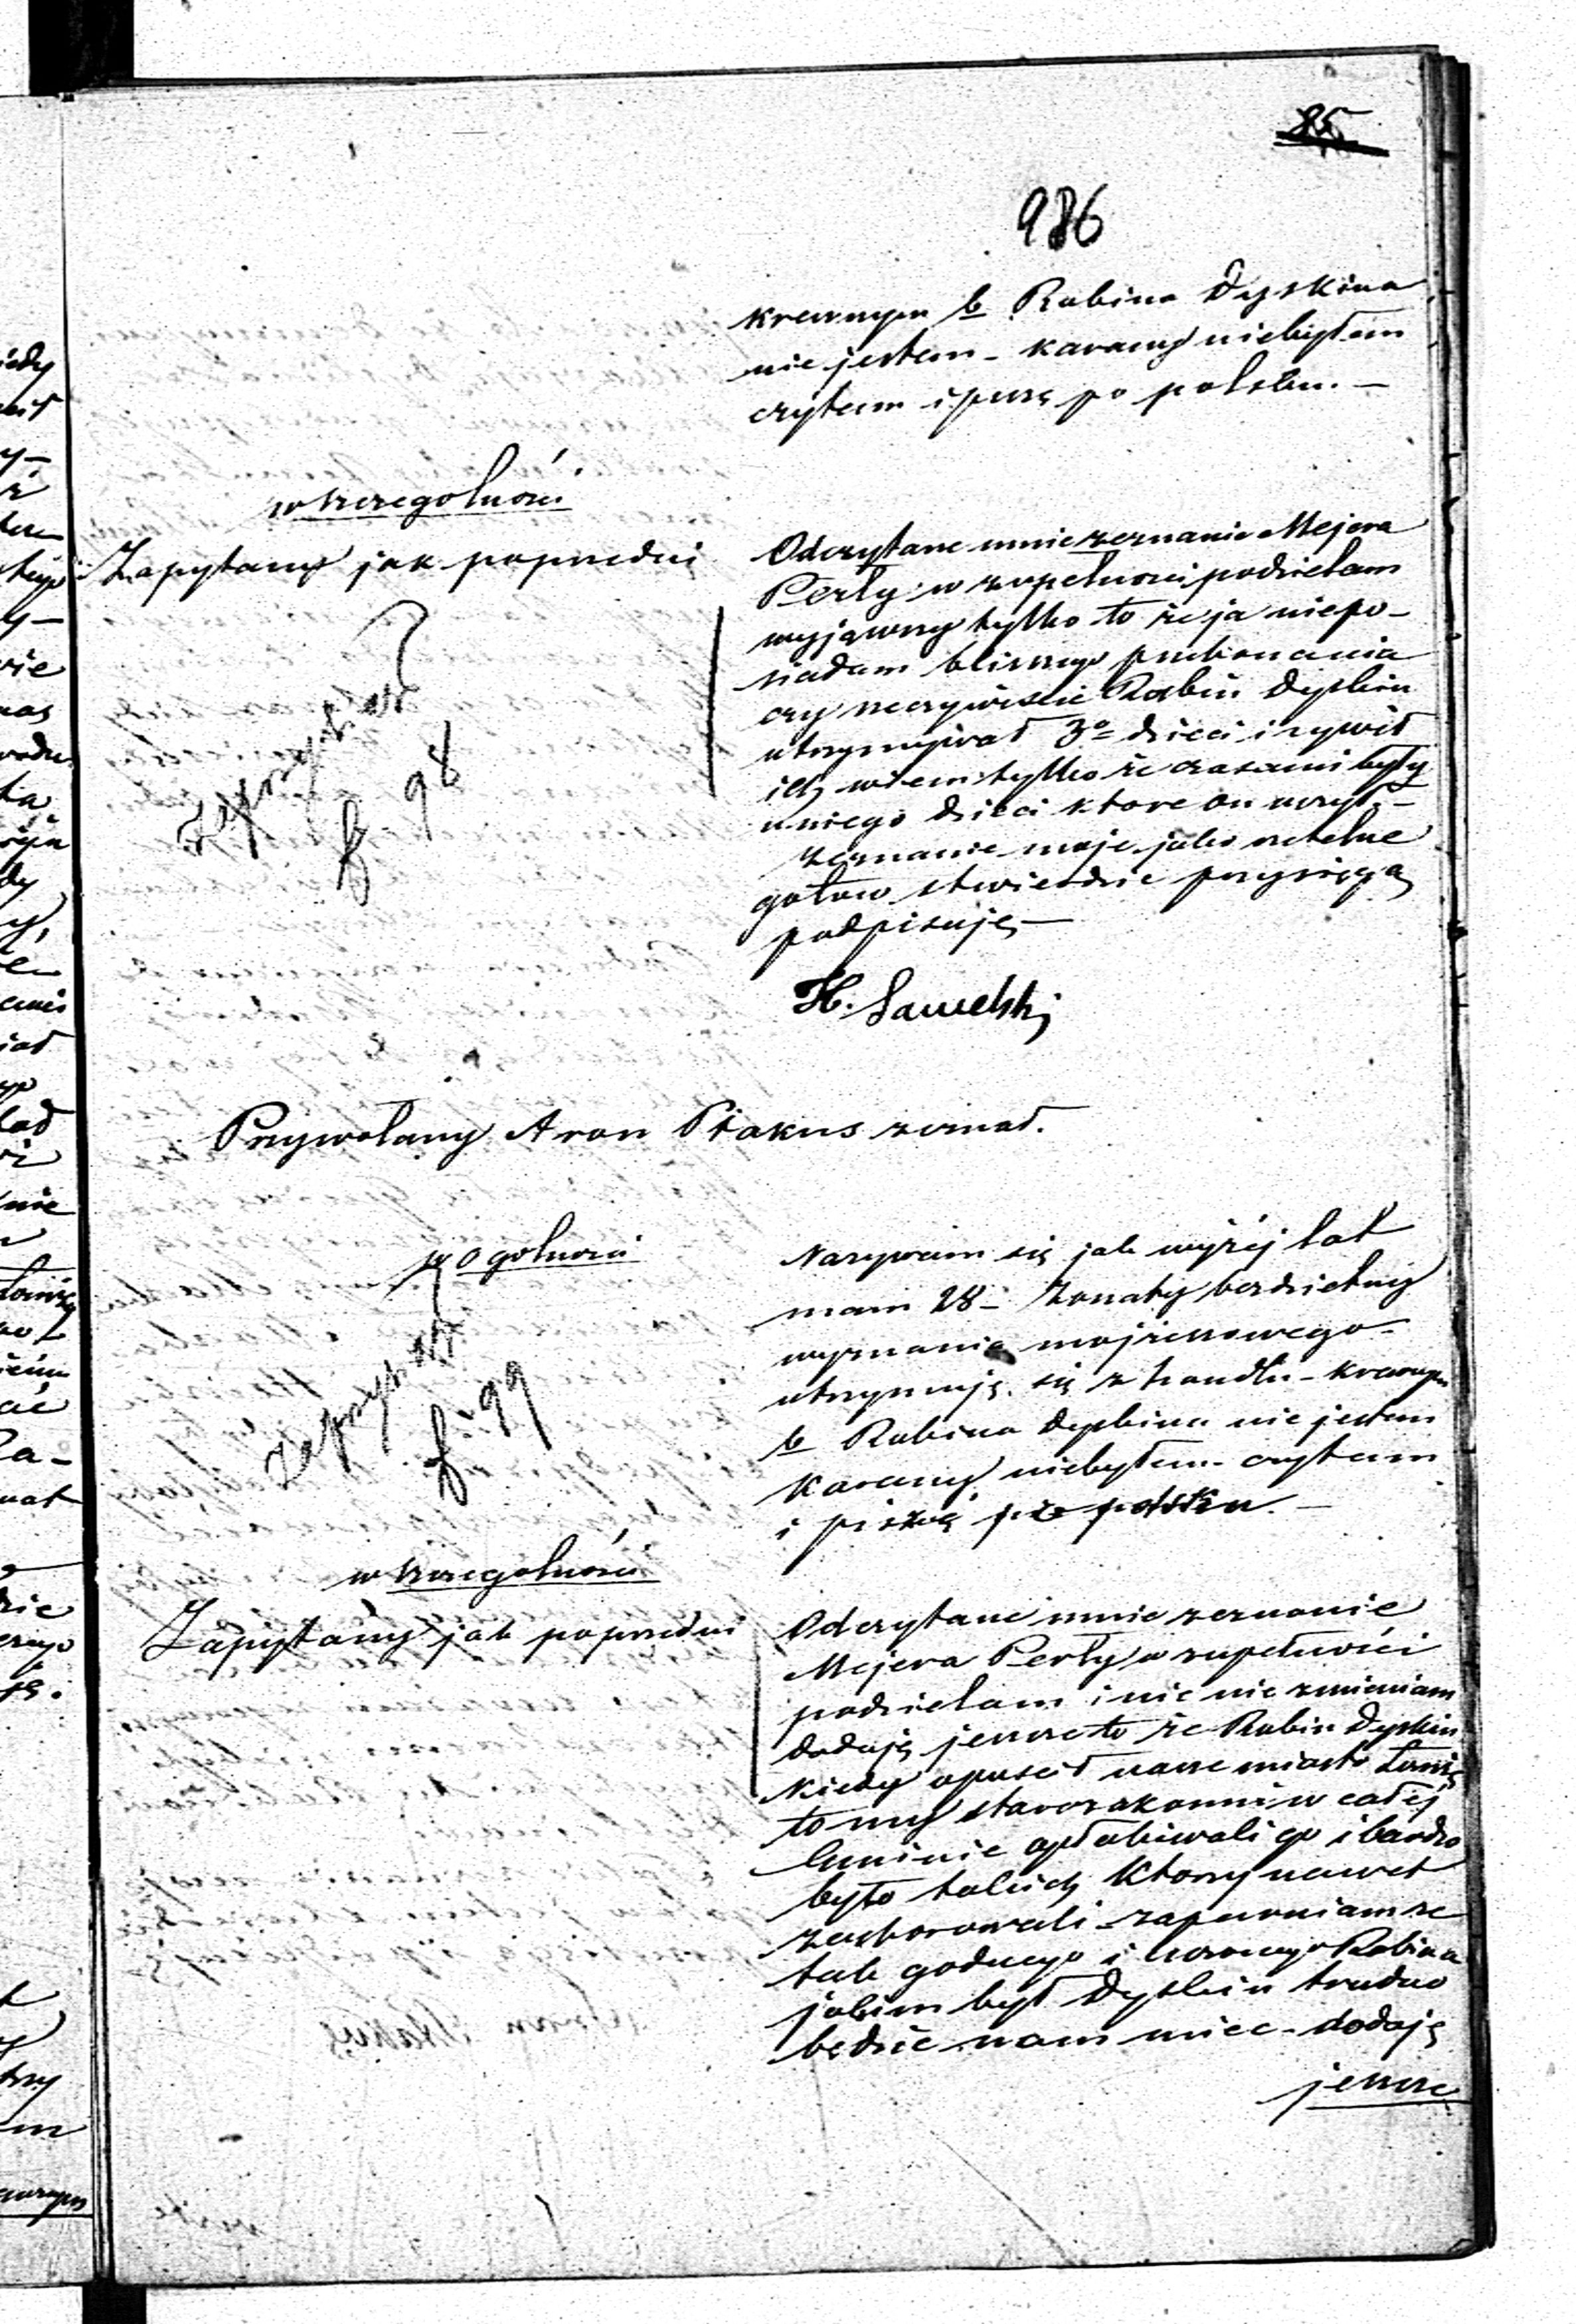 85
986
krewnym b Rabina Dyskina
nie jestem - karany niebyłem
czytam i piszę po polsku. -
w szczegolności
Zapytany jak poprzedni
Odczytane mnie zeznanie Mejera
Perły w zupełności podzielam
wyjąwszy tylko to że ja niepo-
siadam bliższego przekonania
czy rzeczywiście Rabin Dyskin
utrzymywał 3° dzieci i żywił
ich wiem tylko że czasami były
u niego dzieci ktore on uczył, -
zeznanie moje jako rzetelne
gotow stwierdzic przysięgą
podpisuję -
zaprzysiągł
f 98
H. Sawelski
Przywołany Aron Ptakus zeznał.
w ogolności
Nazywam się jak wyżéj lat
mam 28 - żonaty bezdzietny
wyznania mojżeszowego -
utrzymuję się z handlu - krewnym
b Rabina Dyskina nie jestem
Karany niebyłem - czytam
i piszę po polsku. -
f: 99
w szczegolności
Zapytany jak poprzedni
Odczytane mnie zeznanie
Mejera Perły w zupełności
podzielam i nic nie zmieniam
dodaję jeszcze to że Rabin Dyskin
Kiedy opuscił nasze miasto Łomżę
to my starozakonni w całéj
Gminie opłakiwali go i bardzo
było takich Ktorzy nawet
zachorowali - zapewniam ze
tak godnego i Rabina
jakim był Dyskin trudno
będzie nam miec - dodaję
jeszcze